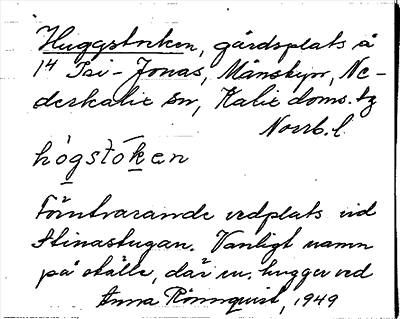 Huggstocken, gårdsplats å
1⁴ Isi-Jonas, Månsbyn, Ne-
derkalix sn, Kalix doms. tg
Norrb. l.
hǫgstǫ́ḵen
Förutvarande vedplats vid
Stinastugan. Vanligt namn
på ställe, där en. hugger ved
Anna Rönnquist, 1949